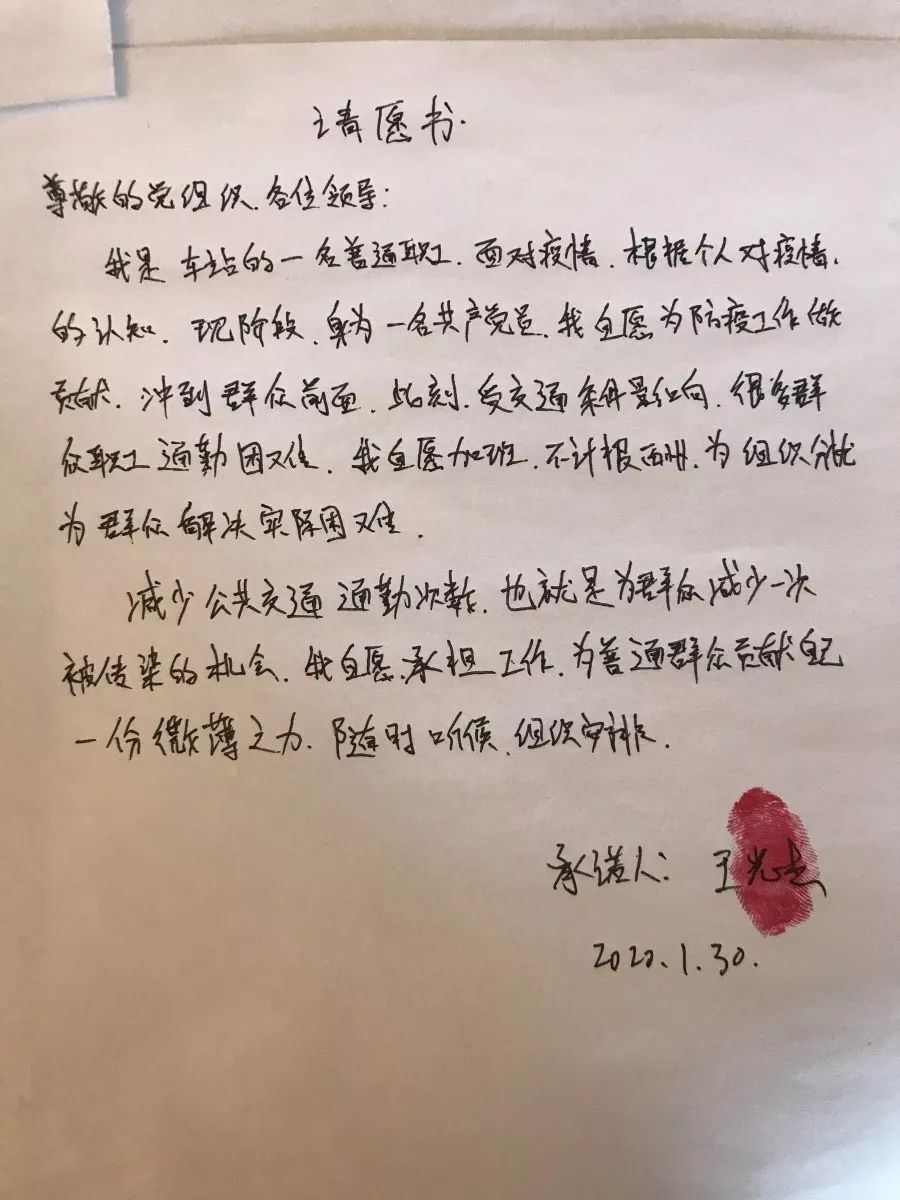 请愿书.
尊敬的党组织.各位领导:
我是车站的一名普通职工.面对疫情.根据个人对疫情.
的认知.现阶段.身为一名共产党员.我自愿为防疫工作做
贡献.冲到群众前面.此刻.受交通条件影响.很多群
众职工通勤困难.我自愿加班.不计报酬.为组织分忧
为群众解决实际困难.
减少公共交通通勤次数.也就是为群众减少一次
被传染的机会.我自愿.承担工作.为普通群众贡献自己
一份微薄之力.随时听候.组织安排.
承诺人:王光杰
2020.1.30.